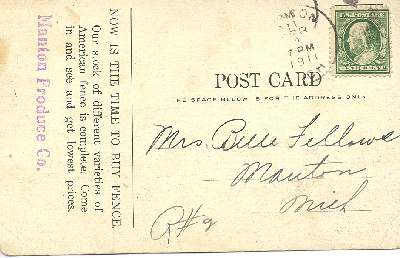 NOW IS THE TIME TO BUY FENCE.
Our stock of different varieties of
American fence is complete. Come
in and see and get lowest prices.
Manton Produce Co.
7 PM
1911
POST CARD
THE SPACE BELOW IS FOR THE ADDRESS ONLY
Mrs. Belle Fellows
Manton
Mich
R#2